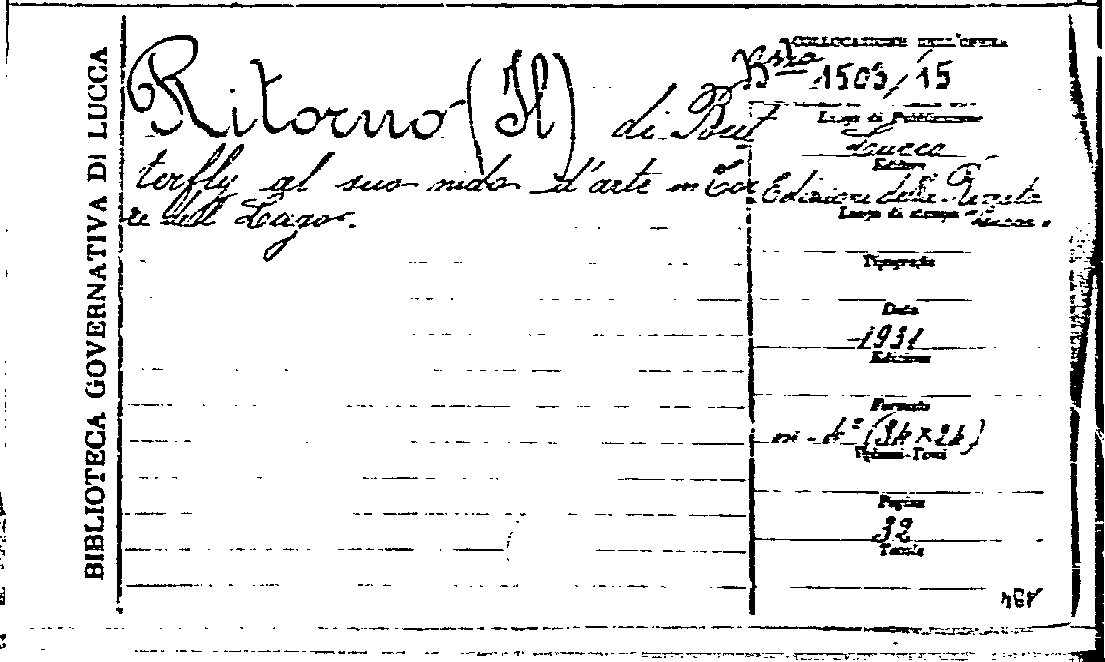 BIBLIOTECA GOVERNATIVA DI LUCCA
Ritorno (Il) di But
terfly al suo nido d'arte in Tor
re del Lago.
COLLOCAZIONE DELL'OPERA
Bsta 1503/15
Luogo di Pubblicazione
Lucca
Editore
Edizioni della
Luogo di stampa
Lucca
Tipografia
Data
1931
Edizione
Formato
in-4° (34×24)
Volumi-Tomi
Pagine
32
Tavole